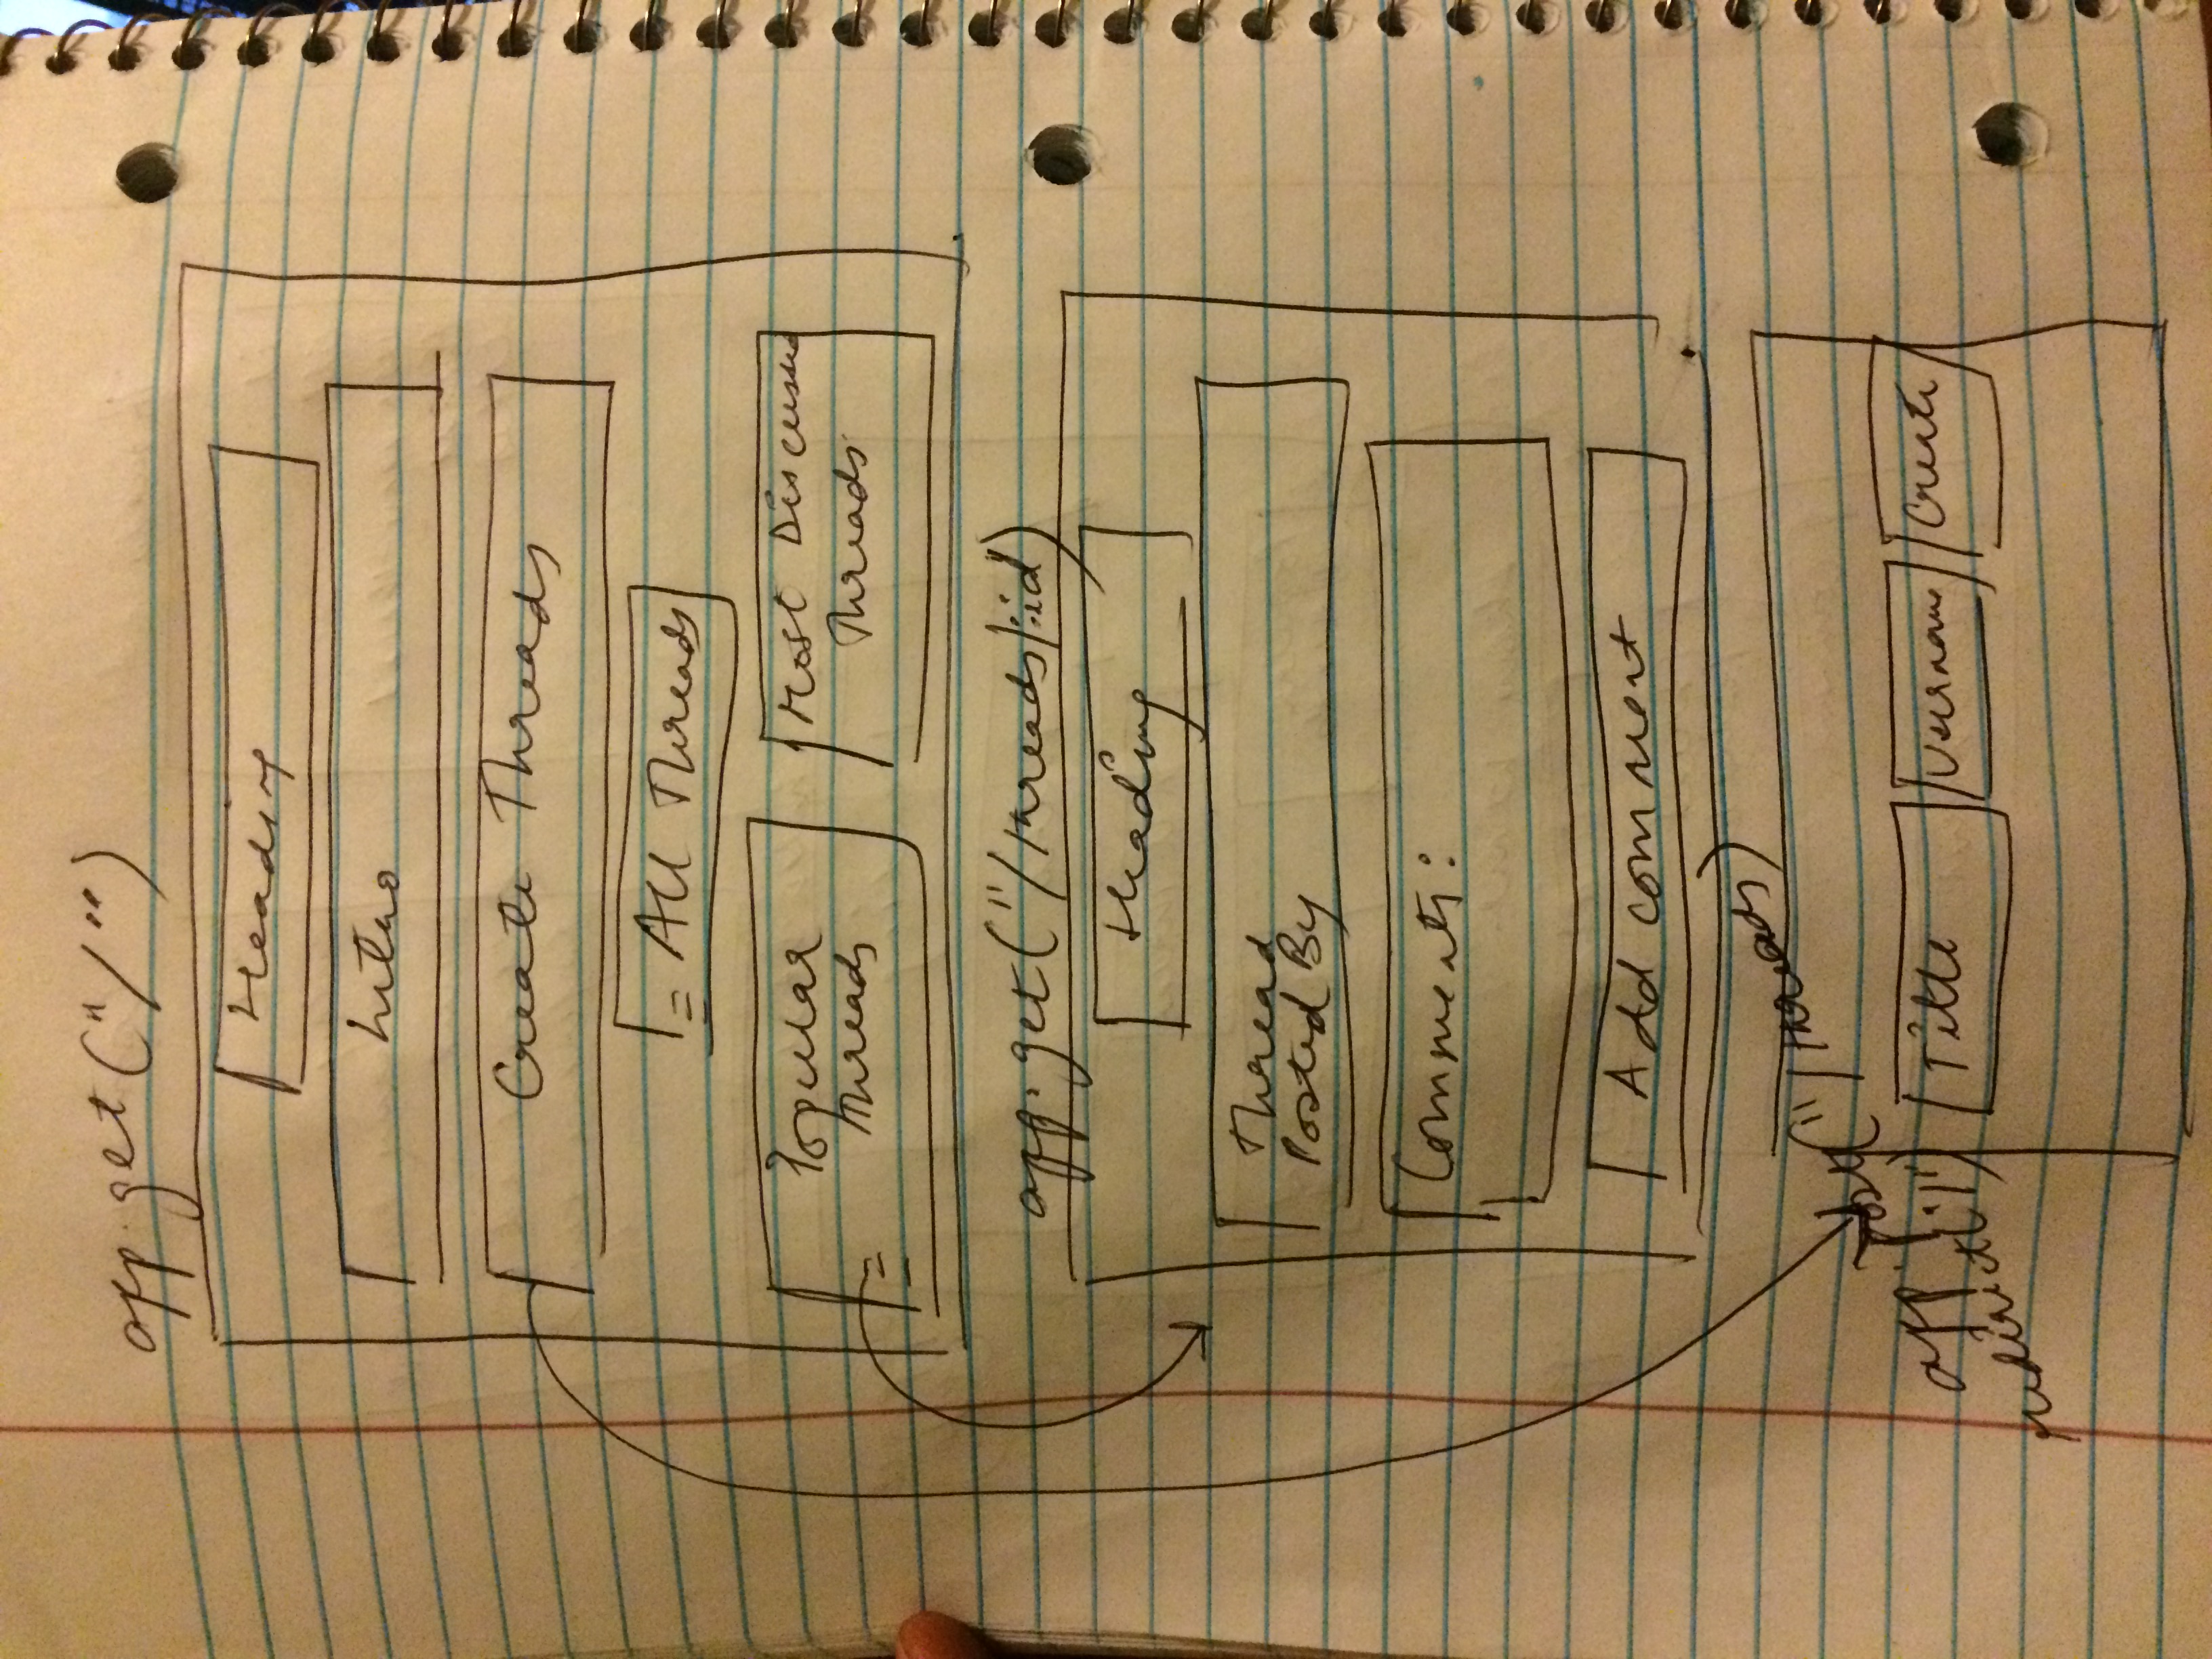 app.get("/")
Heading
Intro
Create Threads
= All Threads
Popular
Threads
Most Discussed
Threads
app.get("/threads/:id")
Heading
Thread
Posted By
Comments:
Add comment
app.post("/threads)
redirect("/")
Title
Username
Create